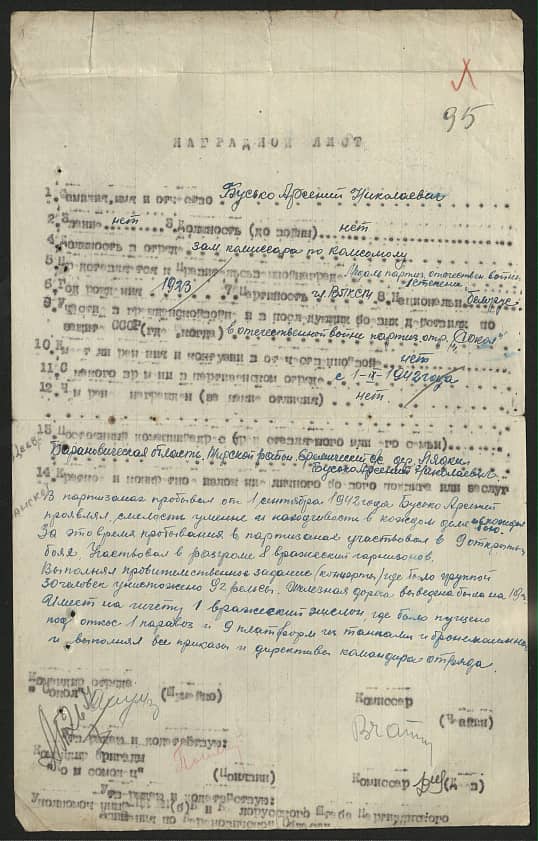 95
НАГРАДНОЙ ЛИСТ
1 Фамилия, имя и отчество Бусько Арсений Николаевич
2 Звание нет 3 Должность (до войны) нет
4 Должность в отряде зам комиссара по комсомолу
Медаль партиз. отечествен. войны
5 степени
6 Год рождения 1923 7 Партийность чл. ВЛКСМ 8 Национальн белорус
9 Участие в гражданской и в последующих боевых действиях по
защите СССР (где, когда) в отечественной войне партиз. отр. "Сокол"
10 Имеет ли ранения и контузии в отечественной нет
11 С какого времени в партизанском отряде с 1-IX-1942 года
12 Чем ранее награжден (за какие отличия) нет
13 Постоянный домашний адрес
Барановическая область, Мирский район, дер. Лядки
Бусько Арсений Николаевич
14 Краткое и конкретное изложение личного боевого подвига или заслуг
В партизанах пробывал от 1 сентября 1942 года Бусько Арсений
проявлял смелость умение и находчивость в каждом деле
За это время пребывания в партизанах участвовал в 9 открытых
боях. Участвовал в разгроме 8 вражеских гарнизонов.
Выполнял правительственное задание /концерты/ где было группой
30 человек уничтожено 92 рельсы. Железная дорога выведена была на
Имеет на счету 1 вражеский эшелон, где было пущено
под откос 1 паровоз и 9 платформ с танками и бронемашинами
и выполнял все приказы и директивы командира отряда.
Командир отряда
"Сокол" Комиссар
Утверждаю и ходатайствую:
Командир бригады
"Комсомолец" Комиссар
Утверждаю и ходатайствую:
Уполномоченный ЦК КП(б)Б и Белорусского Штаба Партизанского
движения по Барановичской Области